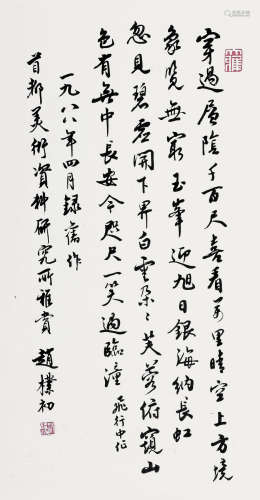 穿過層陰千百尺喜看万里晴空上方境
象覽無窮玉峯迎旭日銀海納長虹
忽見碧虛開下界白雲朵朵芙蓉俯窺山
色有無中長安今咫尺一笑過臨潼 飛行中作
一九八八年四月録舊作
首都美術資料研究所雅賞 趙樸初